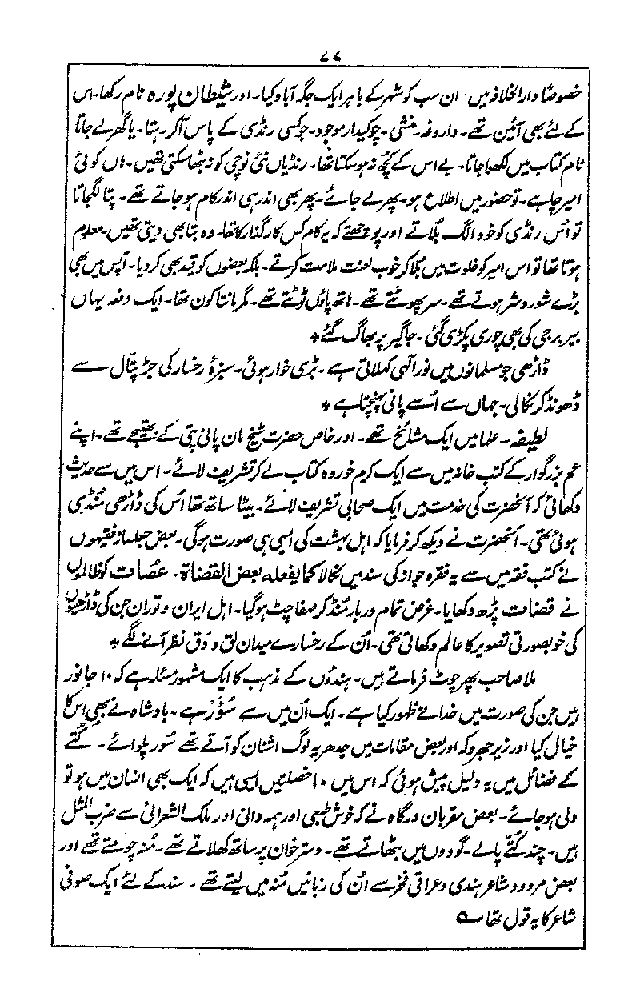 ۷۷
خصوصاً دارالخلافہ میں ان سب کو شہر کے باہر ایک جگہ آباد کیا۔ اور شیطان پورہ نام رکھا۔ اس
کے لئے بھی آئین تھے۔ داروغہ۔ منشی۔ چوکیدار موجود۔ جو کسی رنڈی کے پاس آکر۔ رہتا۔ یا گھر لے جاتا
نام کتاب میں لکھا جاتا۔ بے اس کے کچھ نہ ہو سکتا تھا۔ رنڈیاں نئی نوچی کو نہ بٹھا سکتی تھیں۔ ہاں کوئی
امیر چاہے۔ تو حضور میں اطلاع ہو۔ پھر لے جائے۔ پھر بھی اندر ہی اندر کام ہو جاتے تھے۔ پتا لگ جاتا
تو اُس رنڈی کو خود الگ بلاتے اور پوچھتے کہ یہ کام کس کا رگذار کا تھا۔ وہ بتا بھی دیتی تھیں۔ معلوم
ہوتا تھا تو اس امیر کو خلوت میں بلا کر خوب لعنت ملامت کرتے۔ بلکہ بعضوں کو قید بھی کر دیا۔ آپس میں بھی
بڑے شور و شر ہوتے تھے۔ سر پھوٹتے تھے۔ ہاتھ پاؤں ٹوٹتے تھے۔ مگر مانتا کون تھا۔ ایک دفعہ یہاں
بیربر جی کی بھی چوری پکڑی گئی۔ جاگیر پر بھاگ گئے ٭
ڈاڑھی جو مسلمانوں میں نور الٰہی کہلاتی ہے۔ بڑی خوار ہوئی۔ سبزۂ رخسار کی جڑ پتال سے
ڈھونڈ کر نکالی۔ جہاں سے اُسے پانی پہنچتا ہے ٭
لطیفہ۔ علما میں ایک مشائخ تھے۔ اور خاص حضرت شیخ مان پانی پتی کے بھتیجے تھے۔ اپنے
عم بزرگوار کے کتب خانہ میں سے ایک کرم خوردہ کتاب لے کر تشریف لائے۔ اس میں سے حدیث
دکھائی کہ آنحضرت کی خدمت میں ایک صحابی تشریف لائے۔ بیٹا ساتھ تھا اُس کی ڈاڑھی مُنڈی
ہوئی تھی۔ آنحضرت نے دیکھ کر فرمایا کہ اہل بہشت کی ایسی ہی صورت ہوگی۔ بعض جعلساز فقیہوں
نے کتب فقہ میں سے یہ فقرہ جواز کی سند میں نکالا کما یفعلہ بعض القضاۃ۔ عُصات کو ظالموں
نے قضات پڑھ دکھایا۔ غرض تمام دربار مُنڈ کر صفاچٹ ہو گیا۔ اہل ایران و توران جن کی ڈاڑھیوں
کی خوبصورتی تصویر کا عالم دکھاتی تھی۔ اُن کے رخسارے میدان لق و دق نظر آنے لگے ٭
ملا صاحب پھر چوٹ فرماتے ہیں۔ ہندؤں کے مذہب کا ایک مشہور مسئلہ ہے کہ ۱۰ جانور
ہیں جن کی صورت میں خدا نے ظہور کیا ہے۔ ایک اُن میں سے سُؤر ہے۔ بادشاہ نے بھی اس کا
خیال کیا اور زیر جھروکہ اور بعض مقامات میں جدھر یہ لوگ اشنان کو آتے تھے سُور پلوائے۔ کُتے
کے فضائل میں یہ دلیل پیش ہوئی کہ اس میں ۱۰ خصلتیں ایسی ہیں کہ ایک بھی انسان میں ہو تو
ولی ہو جائے۔ بعض مقربان درگاہ نے کہ خوش طبعی اور ہمہ دانی اور ملک الشعرائی سے ضرب المثل
ہیں۔ چند کُتے پالے۔ گودوں میں بٹھاتے تھے۔ دسترخوان پر ساتھ کھلاتے تھے۔ مُنہ چومتے تھے اور
بعض مردود شاعر ہندی و عراقی فخر سے اُن کی زبانیں مُنہ میں لیتے تھے۔ سند کے لئے ایک صوفی
شاعر کا یہ قول تھا ؎